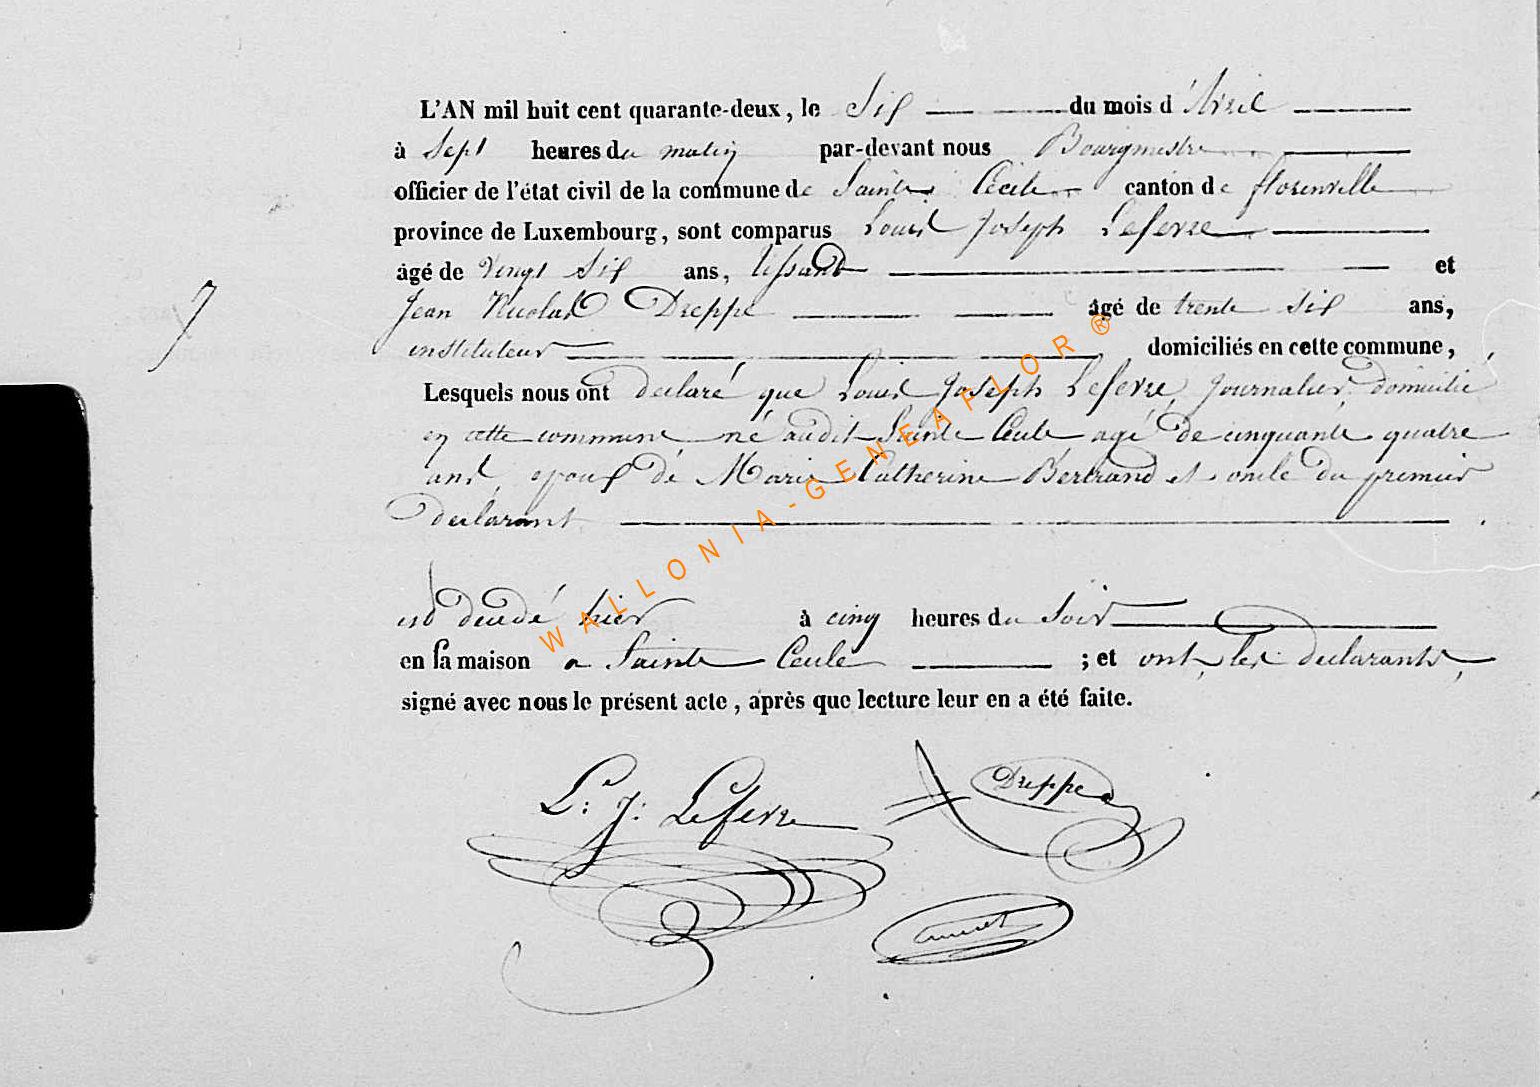 L'AN mil huit cent quarante-deux, le Six du mois d'Avril
à Sept heures du matin par-devant nous Bourgmestre
officier de l'état civil de la commune de Sainte Cécile canton de florenville
province de Luxembourg, sont comparus Louis Joseph Lefevre
âgé de vingt six ans, tissand et
Jean Nicolas Dreppe âgé de trente six ans,
instituteur domiciliés en cette commune,
7
Lesquels nous ont declaré que Louis Joseph Lefevre, Journalier, domicilié
en cette commune né audit Sainte Cecile agé de cinquante quatre
ans, epoux de Marie Catherine Bertrand et oncle du premier
declarant
est decedé hier à cinq heures du Soir
en sa maison a Sainte Cecile ; et ont, les declarants,
signé avec nous le présent acte, après que lecture leur en a été faite.
L: J: Lefevre
Dreppe
WALLONIA-GENEAFLOR ®